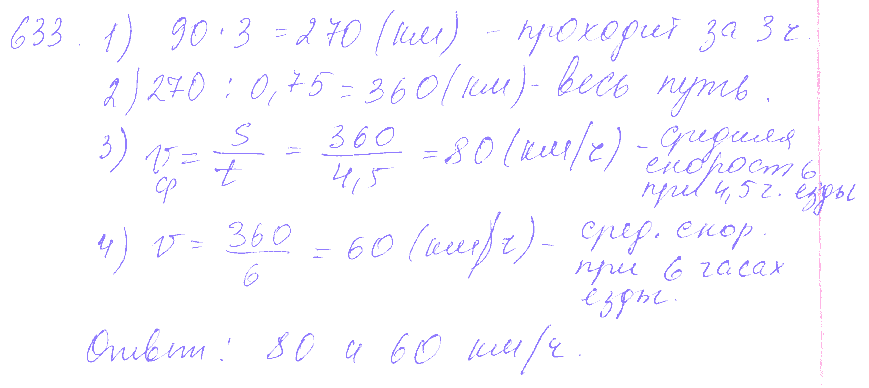 633. 1) 90 · 3 = 270 (км) - проходит за 3 ч.
2) 270 : 0,75 = 360 (км) - весь путь.
3) v ср = S/t = 360/4,5 = 80 (км/ч) - средняя
скорость
при 4,5 ч. езды
4) v = 360/6 = 60 (км/ч) - сред. скор.
при 6 часах
езды.
Ответ: 80 и 60 км/ч.